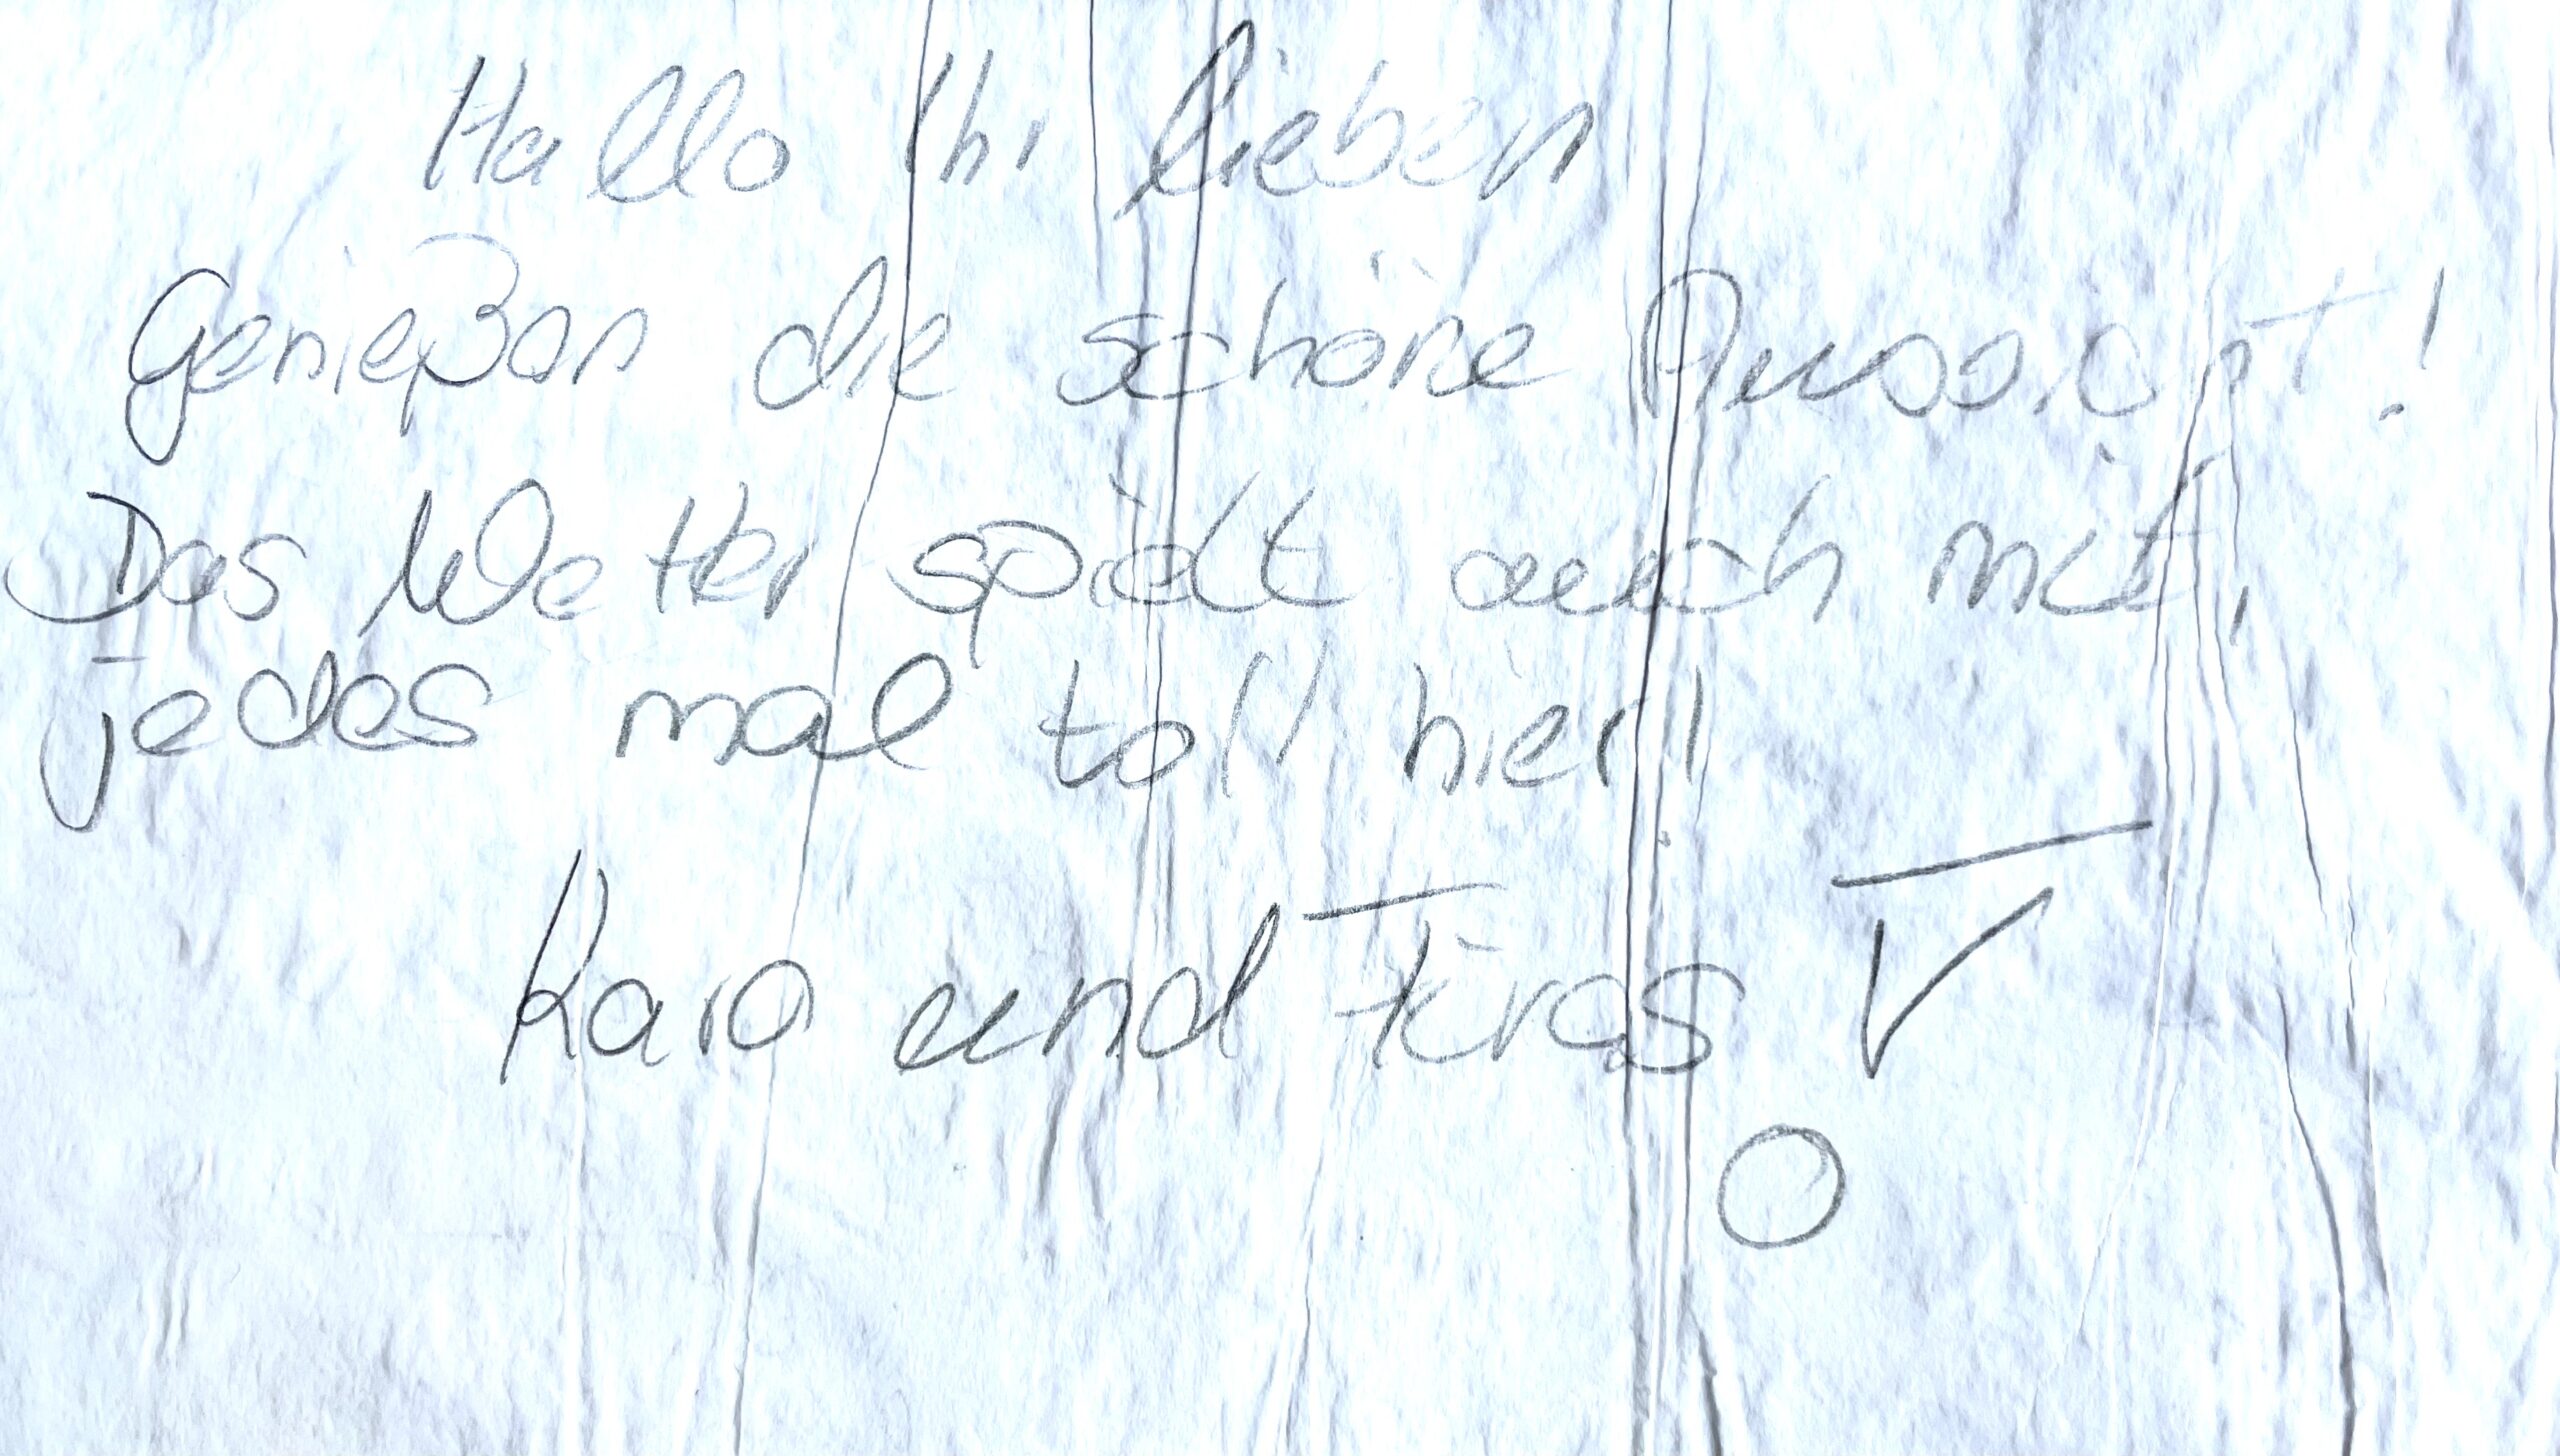 Hallo Ihr lieben
Genießen die schöne Aussicht!
Das Wetter spielt auch mit,
jedes mal toll hier!
Karo und